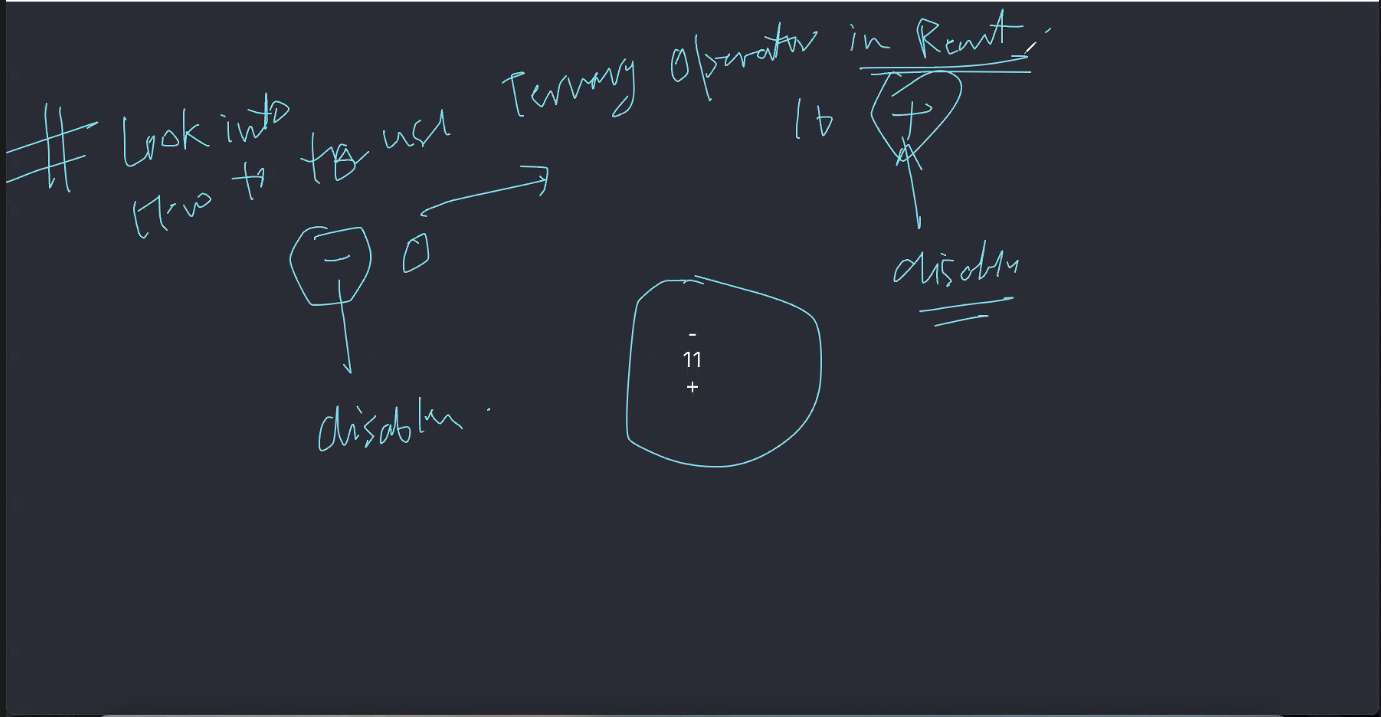 # Look into How to use Ternary Operator in React
- 0 10 +
disable
disable
-
11
+